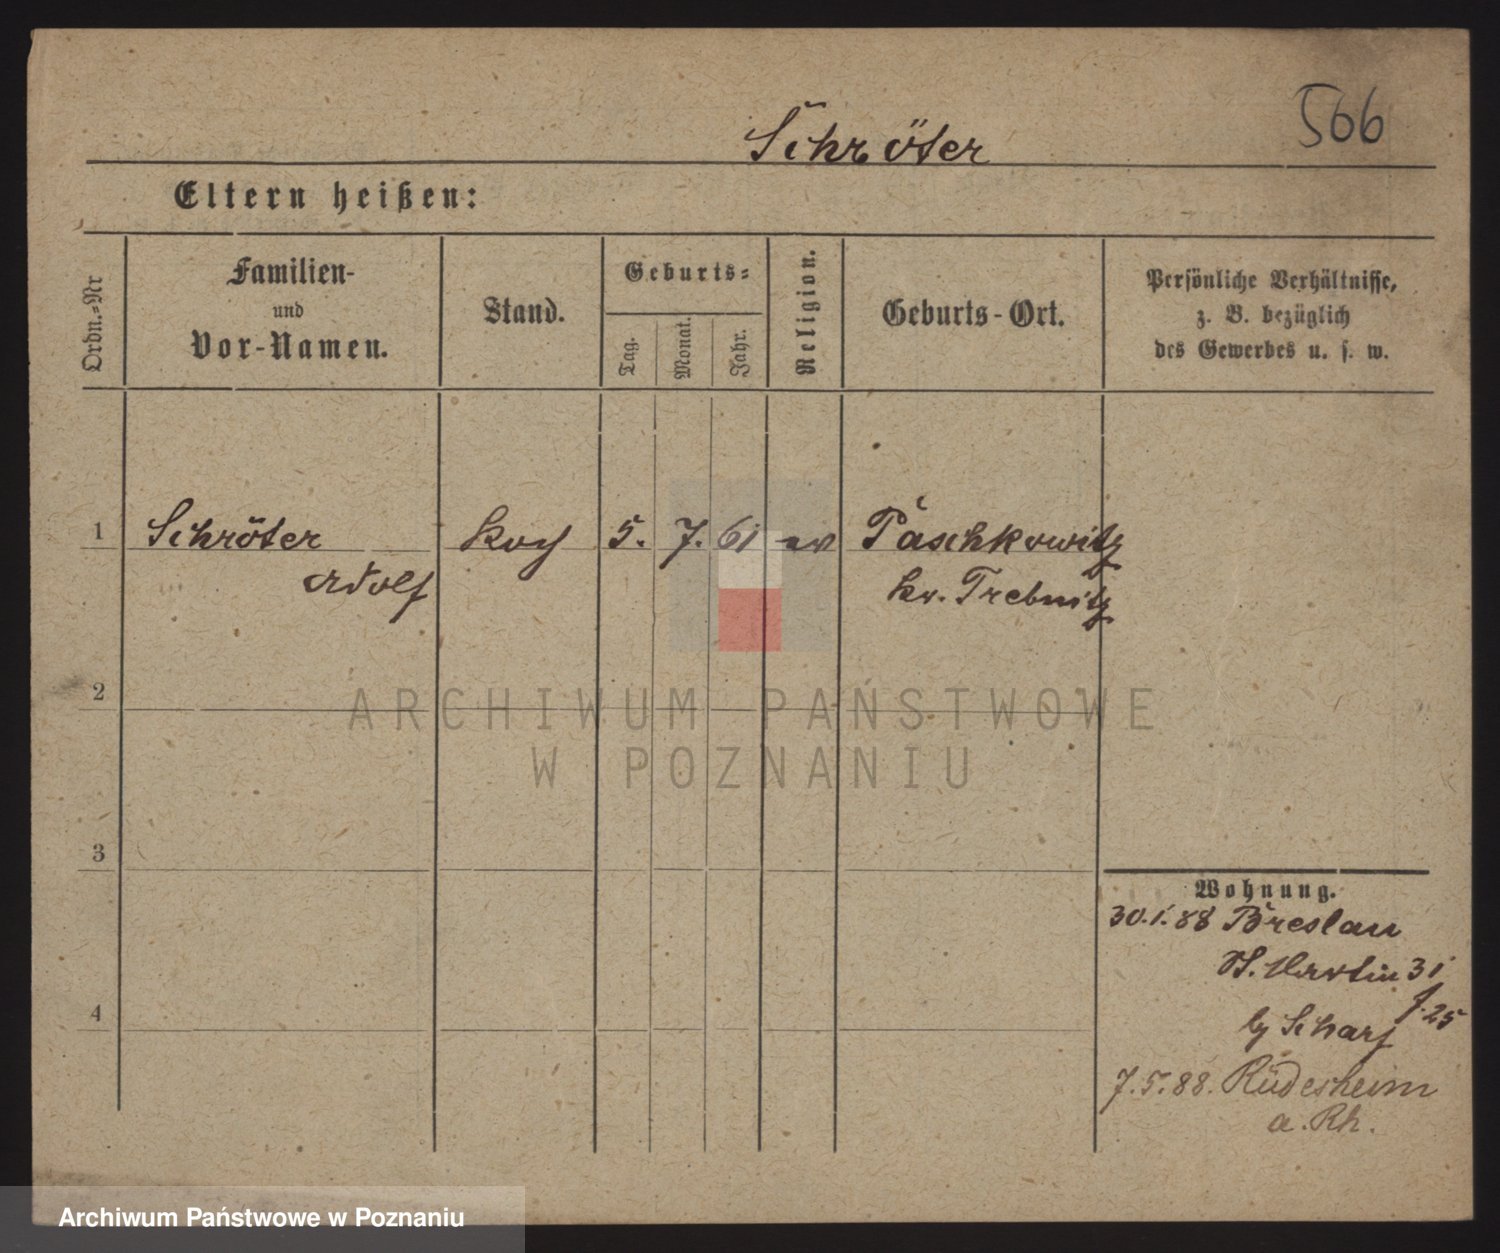 566
Schröter
Eltern heißen:
Ordn.=Nr
Familien-
und
Vor-Namen.
Stand.
Geburts=
Tag.
Monat.
Jahr.
Religion.
Geburts-Ort.
Persönliche Verhältnisse,
z. B. bezüglich
des Gewerbes u. s. w.
1 Schröter Koch 5. 7. 61 ev Paschkowitz
Adolf Kr. Trebnitz
2
ARCHIWUM PAŃSTWOWE
W POZNANIU
3
Wohnung.
30.1.88 Breslau
St. Martin 31
f. 25
4
by Scharf
7.5.88. Rüdesheim
a. Rh.
Archiwum Państwowe w Poznaniu